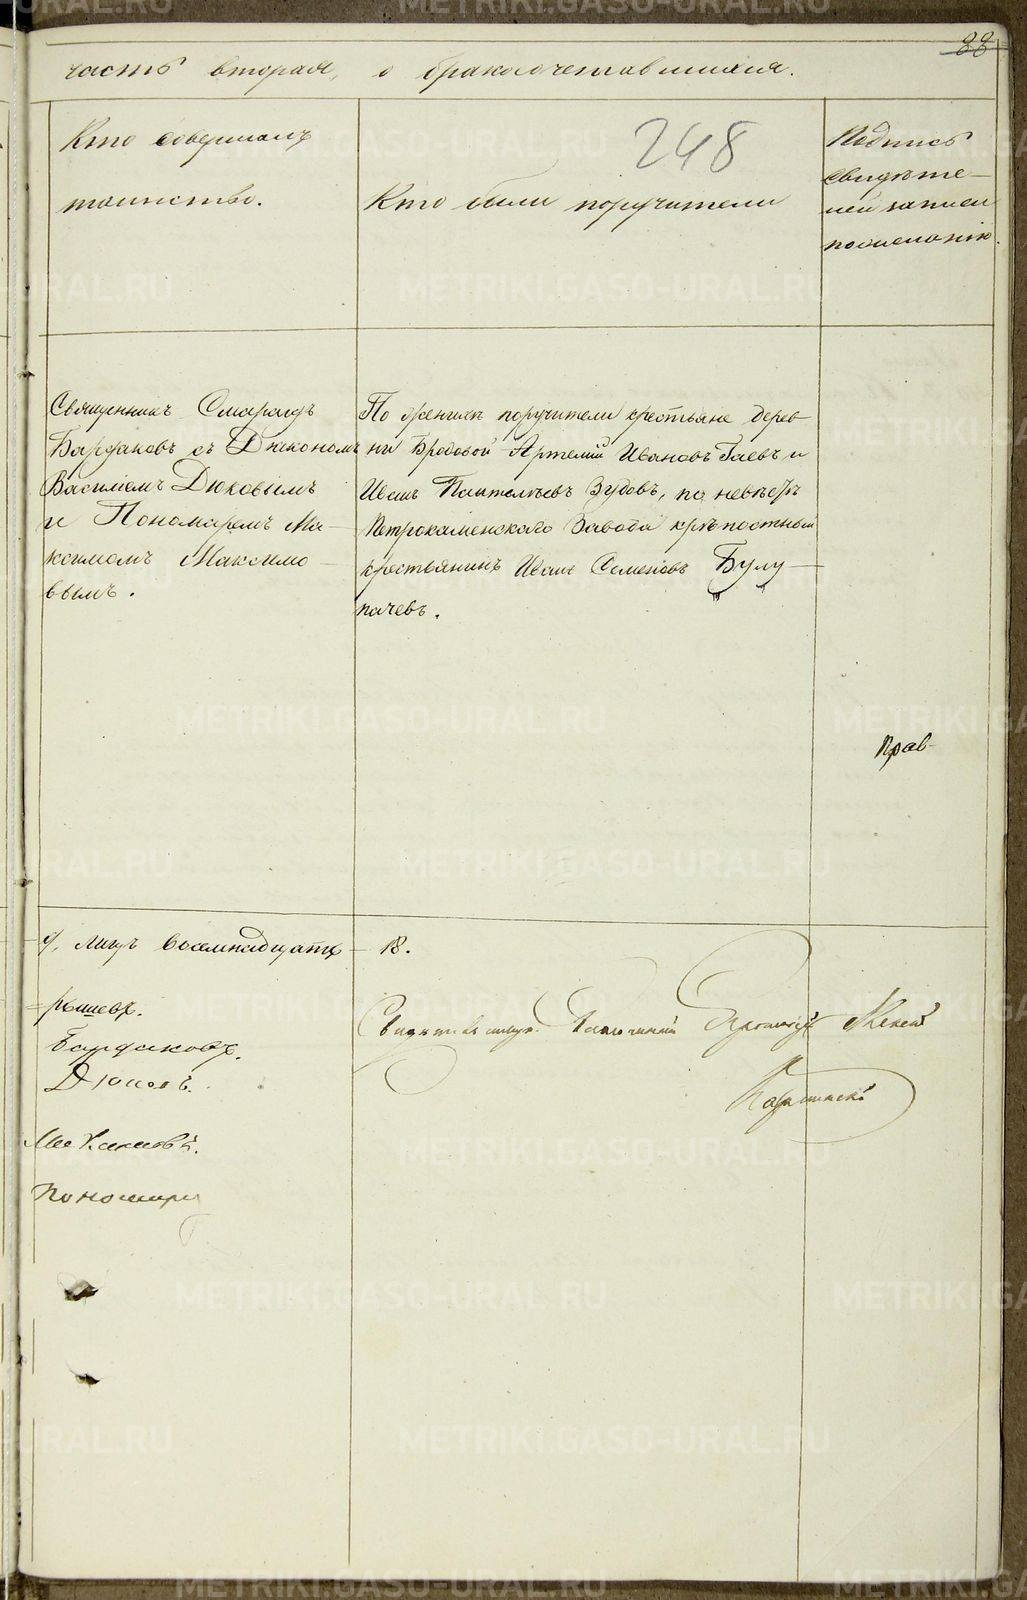 88
часть вторая, о бракосочетавшихся.
Кто совершалъ
таинство.
248
Кто были поручители
Подпись
свидѣте-
лей записи
по желанію.
Священникъ Смарагдъ
Бардаковъ съ Дьякономъ
Василіемъ Дюковымъ
и Пономаремъ Ма-
ксимомъ Максимо-
вымъ.
По женихѣ поручители крестьяне дерев-
ни Бродовой Артемій Ивановъ Гаевъ и
Иванъ Пантелѣевъ Зудовъ, по невѣстѣ
Петрокаменскаго Завода крѣпостный
крестьянинъ Иванъ Семеновъ Булу-
пачевъ.
Прав-
лицъ восемнадцать - 18.
Бардаковъ.
Дюковъ.
Максимовъ.
Пономарь
Свидѣтельств. Благочинный
METRIKI.GASO-URAL.RU